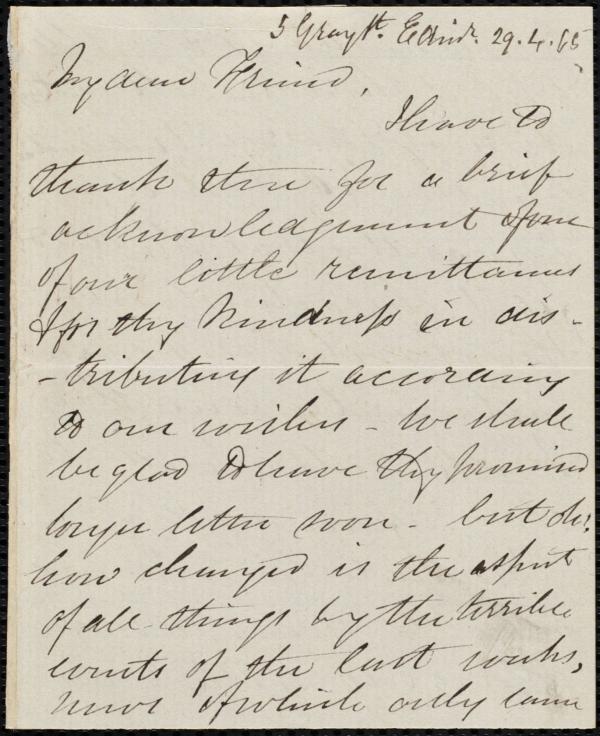 5 Gray St. Edinr. 29.4.65
My dear Friend,
I have to
thank thee for a brief
acknowledgment of one
of our little remittances
& for thy kindness in dis-
-tributing it according
to our wishes - We shall
be glad to have thy promised
longer letter soon - but oh!
how changed is the aspect
of all things by the terrible
events of the last weeks,
news of which only came